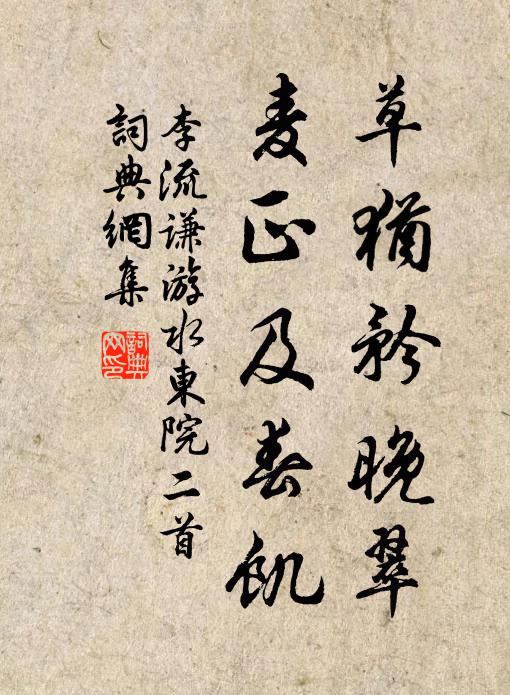 草猶矜晚翠
麦正及春飢
李流謙游水東院二首
詞典網集
詞典网印